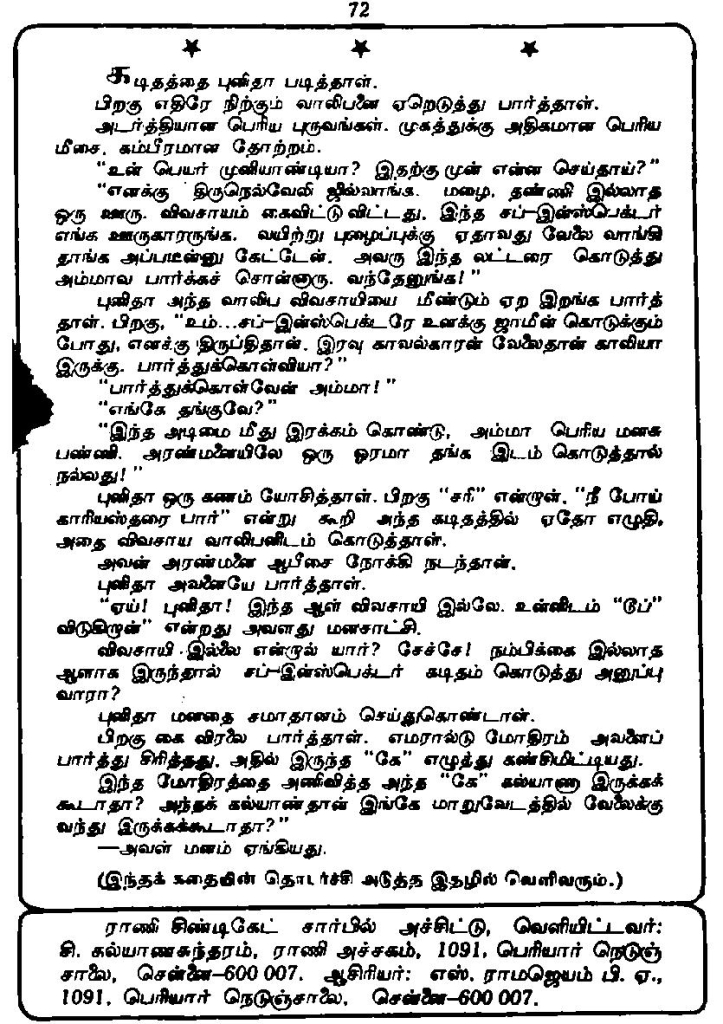 72
கடிதத்தை புனிதா படித்தாள்.
பிறகு எதிரே நிற்கும் வாலிபனை ஏறெடுத்து பார்த்தாள்.
அடர்த்தியான பெரிய புருவங்கள். முகத்துக்கு அதிகமான பெரிய
மீசை. கம்பீரமான தோற்றம்.
"உன் பெயர் முனியாண்டியா? இதற்கு முன் என்ன செய்தாய்?"
"எனக்கு திருநெல்வேலி ஜில்லாங்க. மழை, தண்ணி இல்லாத
ஒரு ஊரு. விவசாயம் கைவிட்டுவிட்டது. இந்த சப்-இன்ஸ்பெக்டர்
எங்க ஊருகாரருங்க. வயிற்று புழைப்புக்கு ஏதாவது வேலை வாங்கி
தாங்க அப்படீன்னு கேட்டேன். அவரு இந்த லட்டரை கொடுத்து
அம்மாவ பார்க்கச் சொன்னாரு. வந்தேனுங்க!"
புனிதா அந்த வாலிப விவசாயியை மீண்டும் ஏற இறங்க பார்த்
தாள். பிறகு, "உம்...சப்-இன்ஸ்பெக்டரே உனக்கு ஜாமீன் கொடுக்கும்
போது, எனக்கு திருப்திதான். இரவு காவல்காரன் வேலைதான் காலியா
இருக்கு. பார்த்துக்கொள்வியா?"
"பார்த்துக்கொள்வேன் அம்மா!"
"எங்கே தங்குவே?"
"இந்த அடிமை மீது இரக்கம் கொண்டு, அம்மா பெரிய மனசு
பண்ணி. அரண்மனையிலே ஒரு ஓரமா தங்க இடம் கொடுத்தால்
நல்லது!"
புனிதா ஒரு கணம் யோசித்தாள். பிறகு "சரி" என்றாள். "நீ போய்
காரியஸ்தரை பார்" என்று கூறி அந்த கடிதத்தில் ஏதோ எழுதி,
அதை விவசாய வாலிபனிடம் கொடுத்தாள்.
அவன் அரண்மனை ஆபீசை நோக்கி நடந்தான்.
புனிதா அவனையே பார்த்தாள்.
"ஏய்! புனிதா! இந்த ஆள் விவசாயி இல்லே. உன்னிடம் "டூப்"
விடுகிறான்" என்றது அவளது மனசாட்சி.
விவசாயி இல்லை என்றால் யார்? சேச்சே! நம்பிக்கை இல்லாத
ஆளாக இருந்தால் சப்-இன்ஸ்பெக்டர் கடிதம் கொடுத்து அனுப்பு
வாரா?
புனிதா மனதை சமாதானம் செய்துகொண்டாள்.
பிறகு கை விரலை பார்த்தாள். எமரால்டு மோதிரம் அவளைப்
பார்த்து சிரித்தது. அதில் இருந்த "கே" எழுத்து கண்சிமிட்டியது.
இந்த மோதிரத்தை அணிவித்த அந்த "கே" கல்யாணா இருக்கக்
கூடாதா? அந்தக் கல்யாண்தான் இங்கே மாறுவேடத்தில் வேலைக்கு
வந்து இருக்கக்கூடாதா?"
—அவள் மனம் ஏங்கியது.
(இந்தக் கதையின் தொடர்ச்சி அடுத்த இதழில் வெளிவரும்.)
ராணி சிண்டிகேட் சார்பில் அச்சிட்டு, வெளியிட்டவர்:
சி. கல்யாணசுந்தரம், ராணி அச்சகம், 1091, பெரியார் நெடுஞ்
சாலை, சென்னை-600 007. ஆசிரியர்: எஸ். ராமஜெயம் பி. ஏ.,
1091, பெரியார் நெடுஞ்சாலை, சென்னை-600 007.